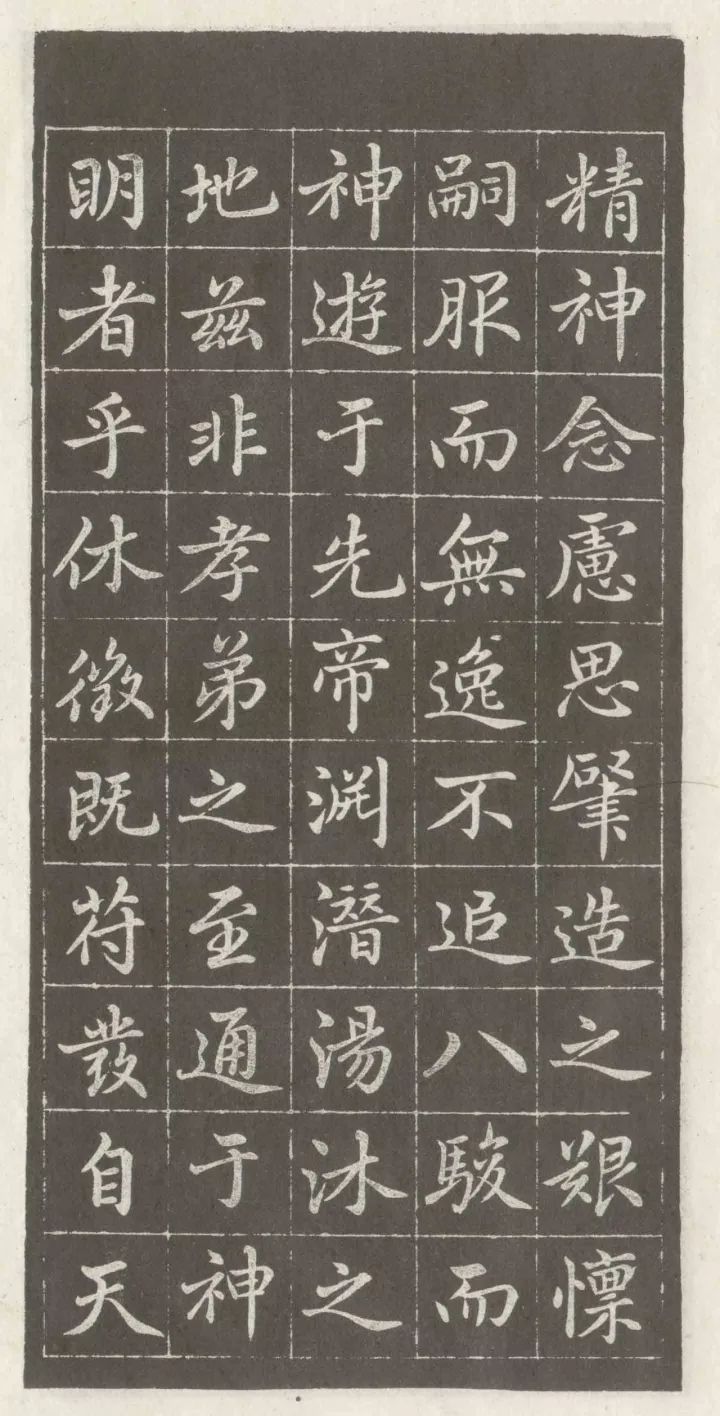 精神念慮思肇造之艱懍
嗣服而無逸不追八駿而
神遊于先帝淵潛湯沐之
地茲非孝弟之至通于神
明者乎休徵既符發自天